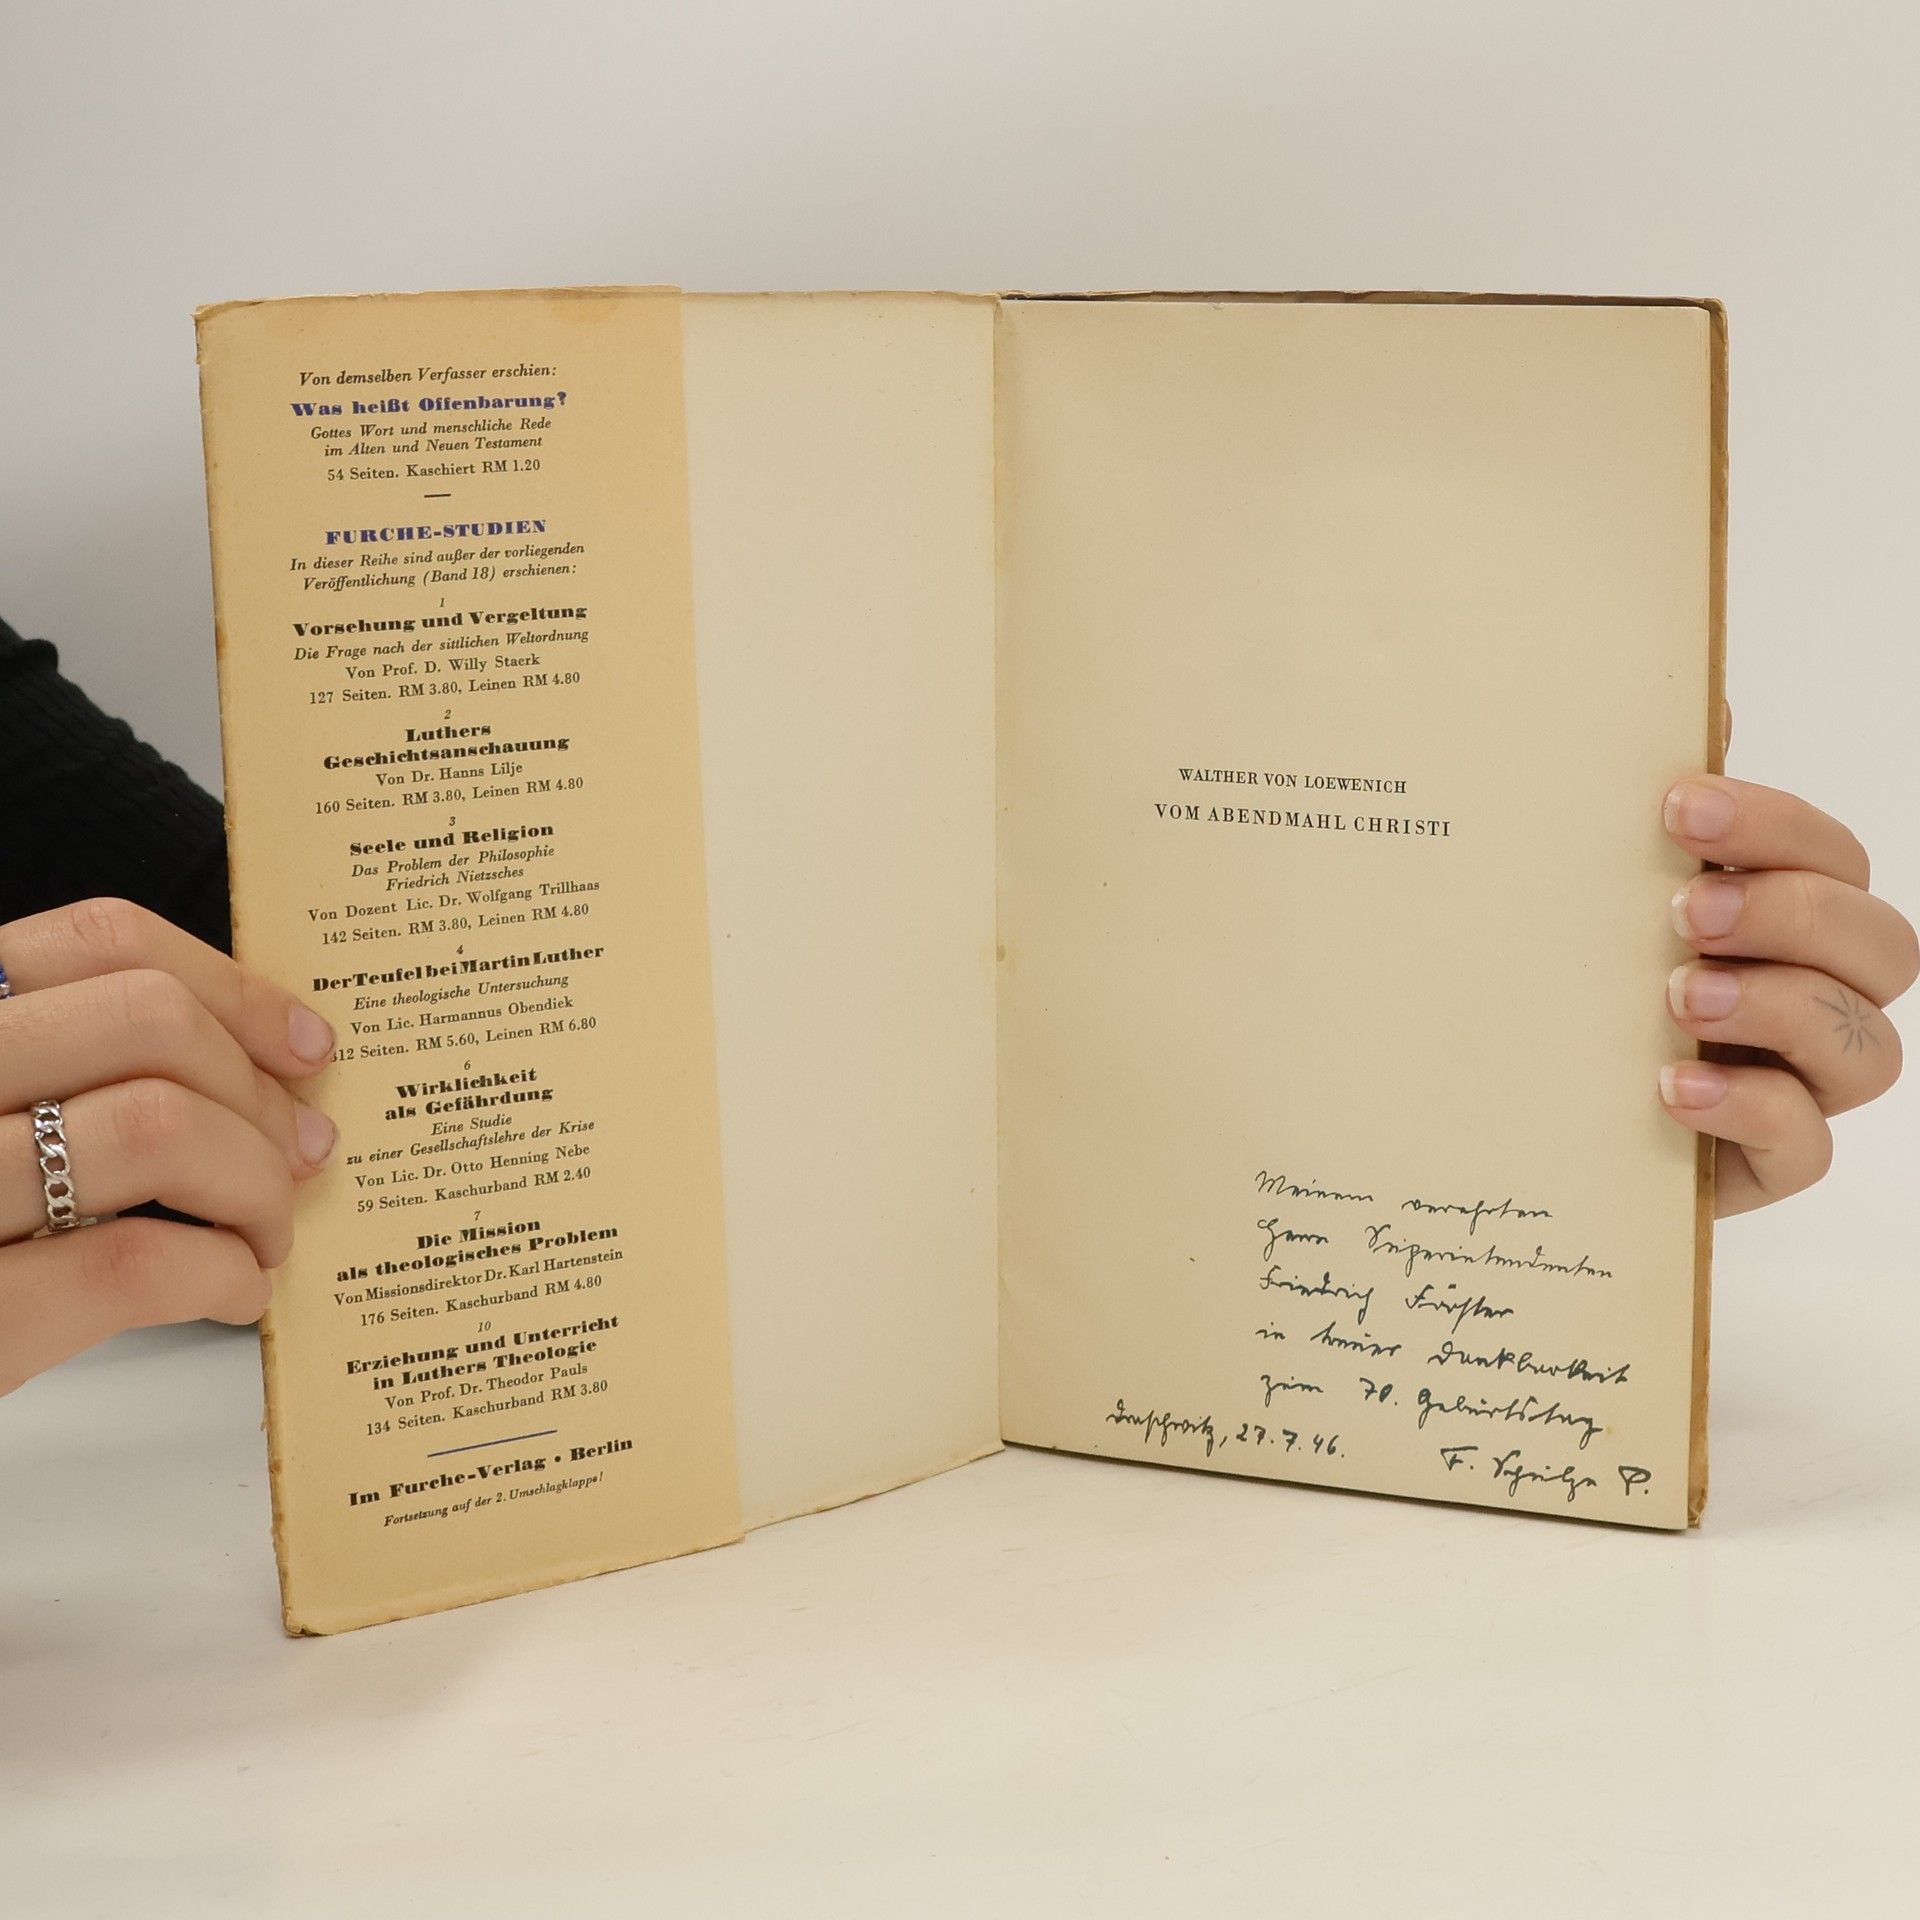 Von demselben Verfasser erschien:
Was heißt Offenbarung?
Gottes Wort und menschliche Rede
im Alten und Neuen Testament
54 Seiten. Kaschiert RM 1.20
FURCHE-STUDIEN
In dieser Reihe sind außer der vorliegenden
Veröffentlichung (Band 18) erschienen:
1
Vorsehung und Vergeltung
Die Frage nach der sittlichen Weltordnung
Von Prof. D. Willy Staerk
127 Seiten. RM 3.80, Leinen RM 4.80
2
Luthers
Geschichtsanschauung
Von Dr. Hanns Lilje
160 Seiten. RM 3.80, Leinen RM 4.80
3
Seele und Religion
Das Problem der Philosophie
Friedrich Nietzsches
Von Dozent Lic. Dr. Wolfgang Trillhaas
142 Seiten. RM 3.80, Leinen RM 4.80
4
Der Teufel bei Martin Luther
Eine theologische Untersuchung
Von Lic. Harmannus Obendiek
312 Seiten. RM 5.60, Leinen RM 6.80
6
Wirklichkeit
als Gefährdung
Eine Studie
zu einer Gesellschaftslehre der Krise
Von Lic. Dr. Otto Henning Nebe
59 Seiten. Kaschurband RM 2.40
7
Die Mission
als theologisches Problem
Von Missionsdirektor Dr. Karl Hartenstein
176 Seiten. Kaschurband RM 4.80
10
Erziehung und Unterricht
in Luthers Theologie
Von Prof. Dr. Theodor Pauls
134 Seiten. Kaschurband RM 3.80
Im Furche-Verlag • Berlin
Fortsetzung auf der 2. Umschlagklappe!
WALTHER VON LOEWENICH
VOM ABENDMAHL CHRISTI
Meinem verehrten
Herrn Superintendenten
Friedrich Förster
in treuer Dankbarkeit
zum 70. Geburtstag
27.7.46.
F. Schulze P.